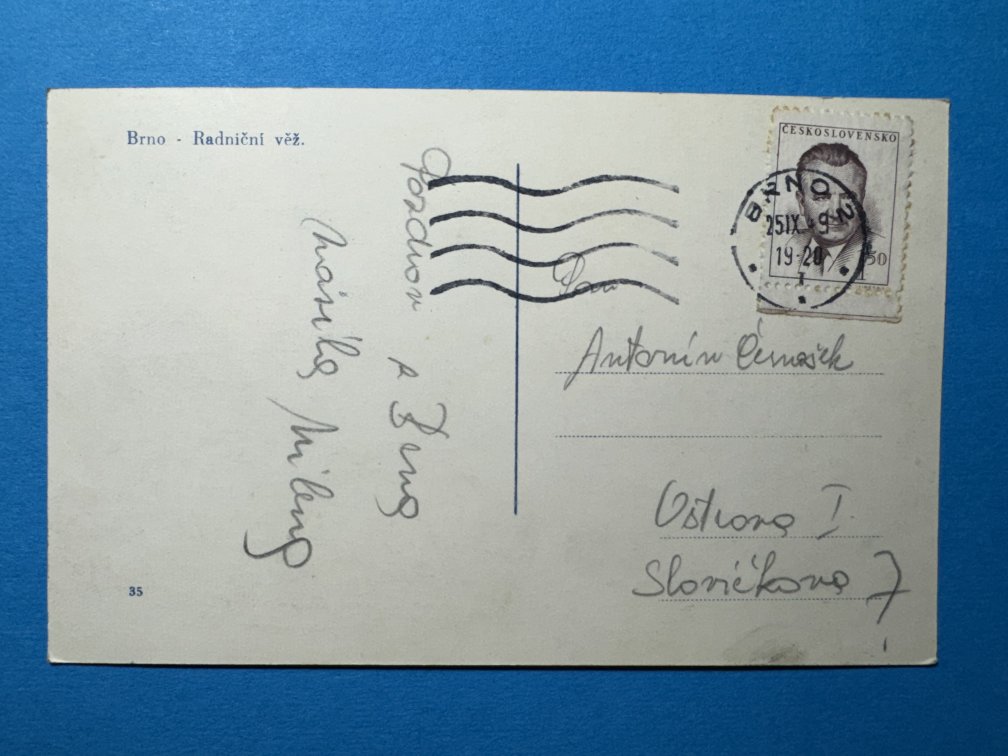 Brno - Radniční věž.
Pozdrav
z Brna
Milena
35
ČESKOSLOVENSKO
BRNO 2
25.IX.49
19-20
1
1.50
Pan
Antonín Černošek
Ostrava I.
Slavíčkova 7